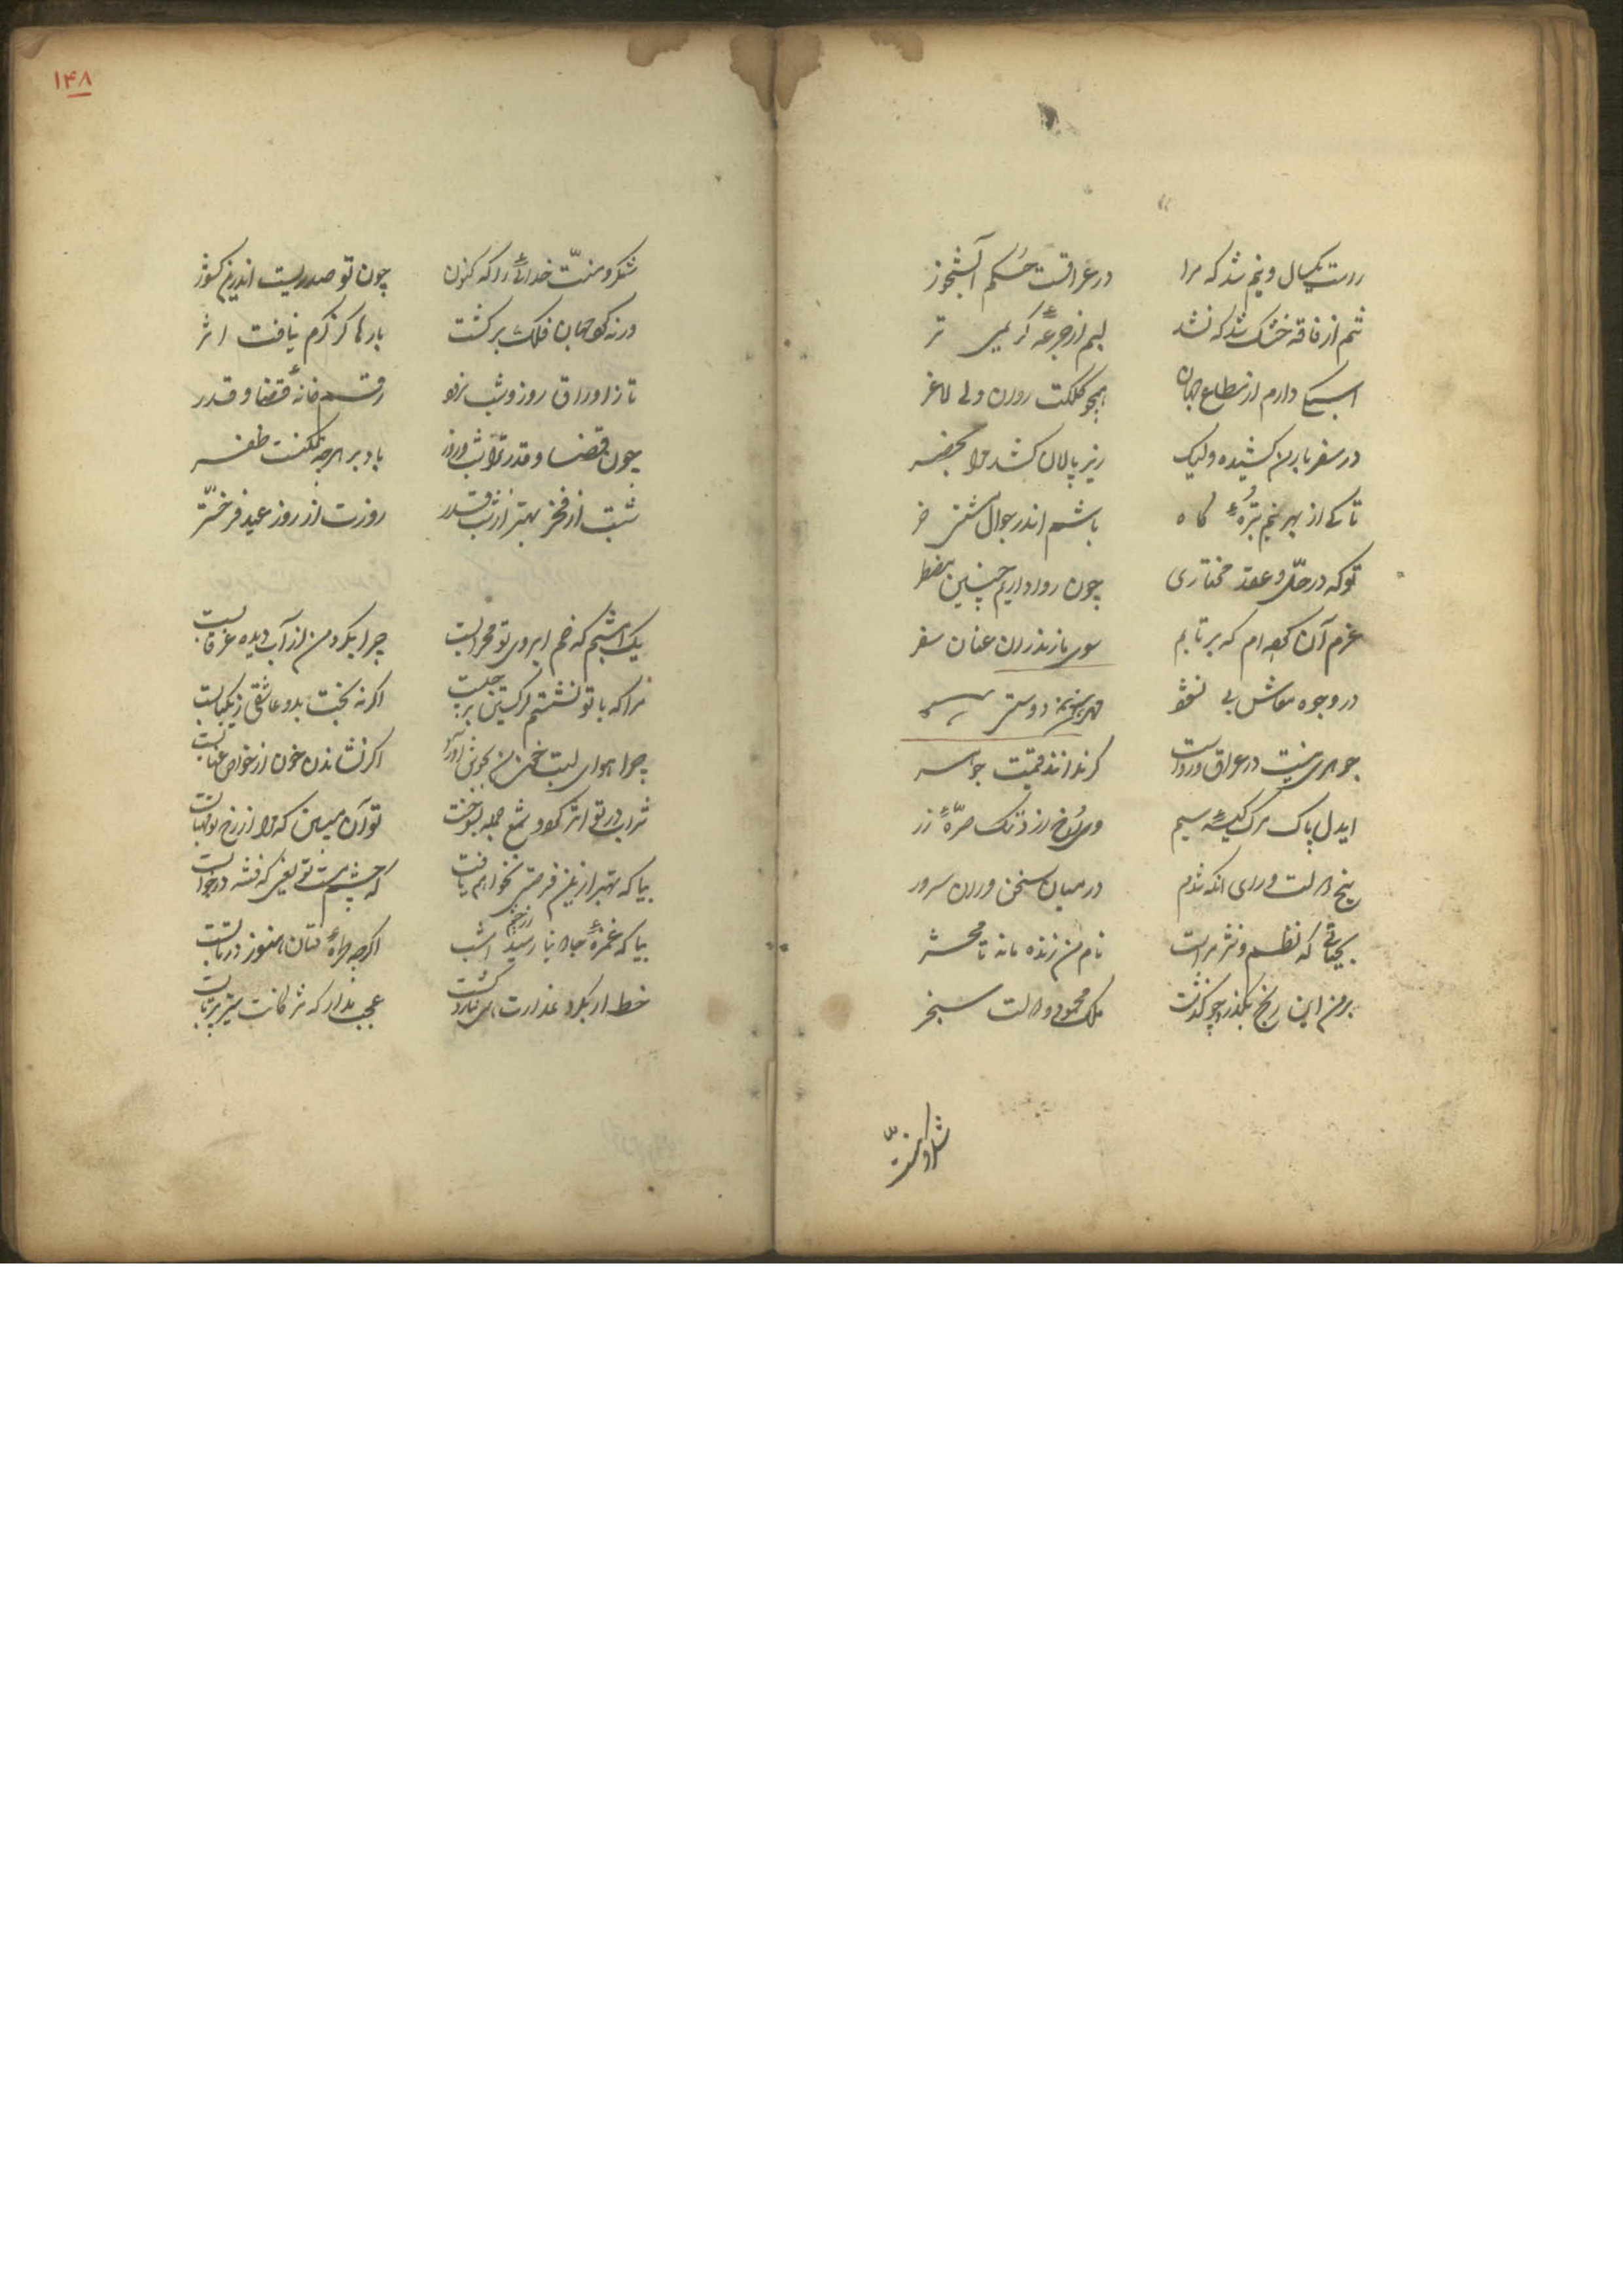 راست یکسال و نیم شد که مرا در عراقست حکم آبشخور
تنم از فاقه خشک شد که نشد لبم از جرعهٔ کریمی تر
اسبکی دارم از جهان همچو کلکت روان ولی لاغر
در سفر بار من کشیده ولیک زیر پالان کشد مرا بحضر
تا کی از بهر نیم تبرهٔ کاه باشم اندر جوال مشتی خر
تو که در حل و عقد مختاری چون روا داریم چنین مضطر
عزم آن کرده ام که برتابم سوی مازندران عنان سفر
در وجوه معاش بی
جوهری نیست در عراق و رواست گر ندانند قیمت جوهر
ای دل پاک ترک کیسهٔ سیم وی رخ از رنگ صرهٔ زر
رنج من زان است در میان سخن وران سرور
بحیاتی که نظم و نثر مراست نام من زنده ماند تا محشر
بر من این رنج بگذرد چو گذشت ملک محمود و دولت سنجر
شکر و منت
۱۴۸
شکر و منت خدای را که کنون چون تو صدریست اندرین کشور
ورنه گرد جهان فلک برگشت بارها کز کرم نیافت اثر
تا ز اوراق روز و شب نرود رقم خانهٔ قضا و قدر
چون قضا و قدر ترا شب و روز باد بر هرچه ممکنست ظفر
شبت از فخر بهتر از شب قدر روزت از روز عید فرختر
یک اشبم که خم ابروی تو محرابست چرا بگرد من از آب دیده غرقابست
مرا که با تو نشستم اگر نه بخت بد و عاشقی
چرا هوای لبت خون من بجوش آورد اگر نشاندن خون از خواص عنابست
شراب در تو اثر کرد و شمع جمله بسوخت تو آن مبین که مرا از رخ تو مهتابست
بیا که بهتر ازین فرصتی نخواهم یافت که چشم مست تو یعنی که فتنه در خوابست
بیا که غمزهٔ اگرچه طرهٔ فتان هنوز در تابست
خط ار بگرد عذارت گشت عجب مدار که مژگانت تیر پرتابست